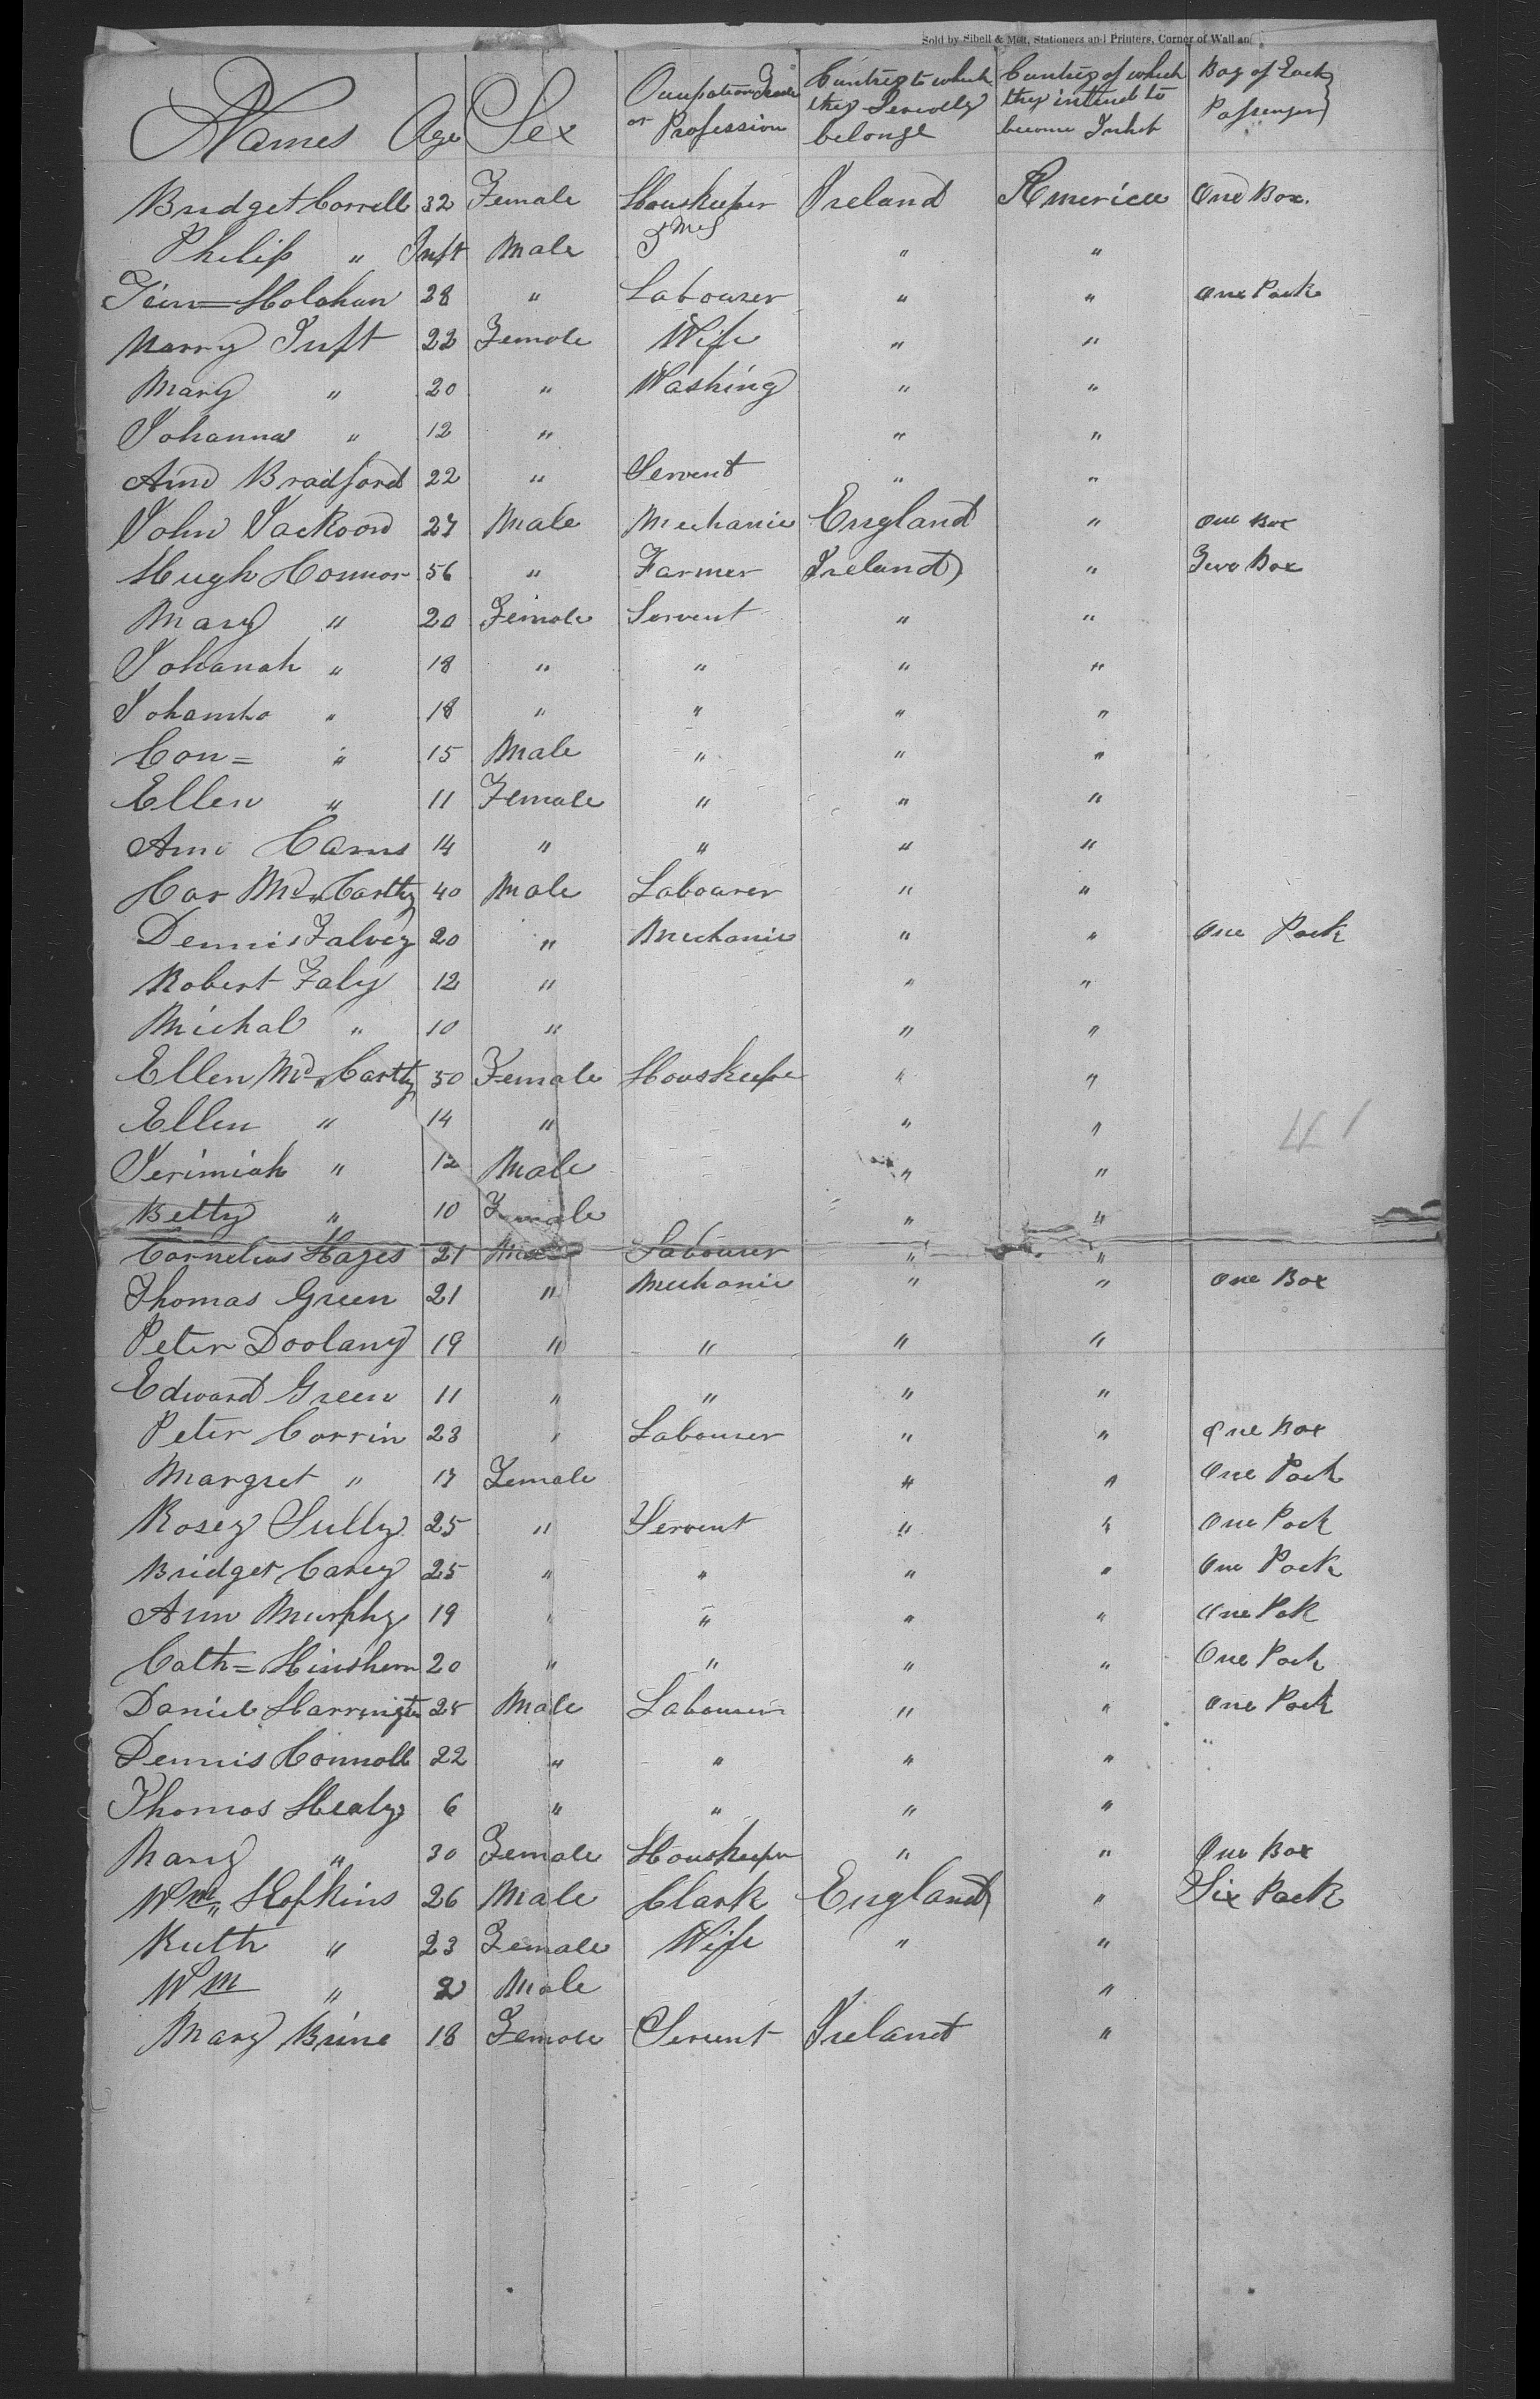 Sold by Sibell & Mott, Stationers and Printers, Corner of Wall an
Names Age Sex Occupation Trade or Profession Cuntrey to which they Severelly belonge Cuntrey of which they intend to become Inhbt Bag of Each Passenger
Bridget Correll 32 Female Houskeeper Ireland America One Box.
Philip " Inft Male 5 Mes " "
Holohan 28 " Labourer " " One Pack
Marry Tuft 22 Female Wife " "
Mary " 20 " Washing " "
Johanna " 12 " " "
Ann Bradford 22 " Servent " "
John Jackson 27 Male Mechanic England " One Box
Hugh Connor 56 " Farmer Ireland " Two Box
Mary " 20 Female Servent " "
Johanah " 18 " " " "
" 18 " " " "
Con= " 15 Male " " "
Ellen " 11 Female " " "
Ann 14 " " " "
Mc Cartty 40 Male Labourer " "
Dennis Falvey 20 " Mechanic " " One Pack
Robert Faly 12 " " "
Michal " 10 " " "
Ellen Mc Cartty 50 Female Houskeepe " "
Ellen " 14 " " "
Jerimiah " 12 Male " "
Betty " 10 Female " "
Cornelius Hayes 21 Male Labourer " "
Thomas Green 21 " Mechanic " " One Box
Peter Doolany 19 " " " "
Edward Green 11 " " " "
Peter Corrin 23 " Labourer " " One Box
Margret " 17 Female " " One Pack
Rosey Sully 25 " Servent " " One Pack
Bridget Carey 25 " " " " One Pack
Ann Murphy 19 " " " " One Pak
Cath= 20 " " " " One Pack
Daniel Harringtn 25 Male Labourer " " One Pack
Dennis Connoll 22 " " " " "
Thomas Healy 6 " " " "
Mary " 30 Female Houskeeper " " One Box
Wm Hopkins 26 Male Clark England " Six Pack
Ruth " 23 Female Wife " "
Wm " 2 Male "
Mary Brine 18 Female Servent Ireland "
41